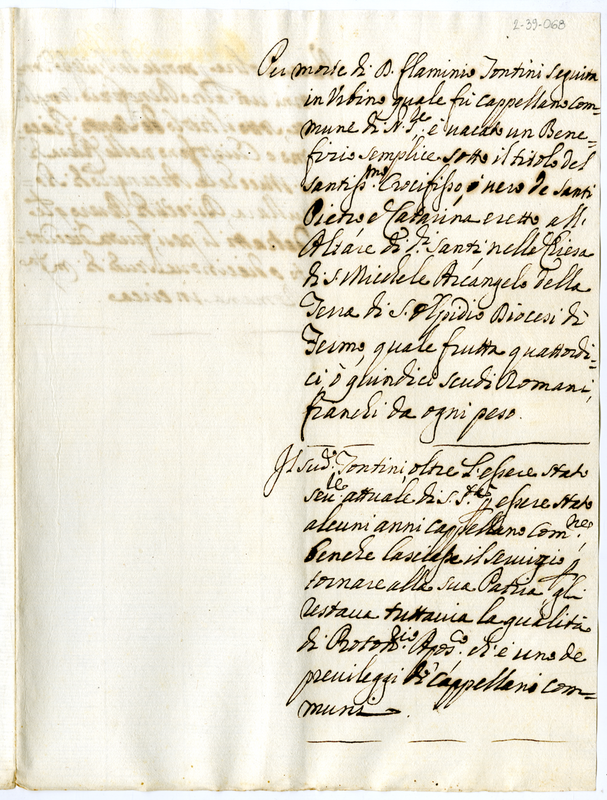 2-39-068
Per morte di D. Flaminio Tontini seguita
in Urbino quale fù cappellano com=
mune di N. Sre. è vacato un Bene=
fizio semplice sotto il titolo del
Santissmo. Crocifisso ò vero de Santi
Pietro e Catarina eretto all'
Altare di di. Santi nella Chiesa
di S. Michele Arcangelo della
Terra di S. Elpidio Diocesi di
Fermo, quale frutta quattordi=
ci ò quindici scudi Romani,
franchi da ogni peso.
Il sudo. Tontini, oltre l'essere stato
attuale di S. Stà. p essere stato
alcuni anni cappellano comne.
benche lasciasse il servizio p
tornare alla sua Patria gli
restava tuttavia la qualità
di Apco. ch'è uno de
previleggi di cappellani com=
muni.